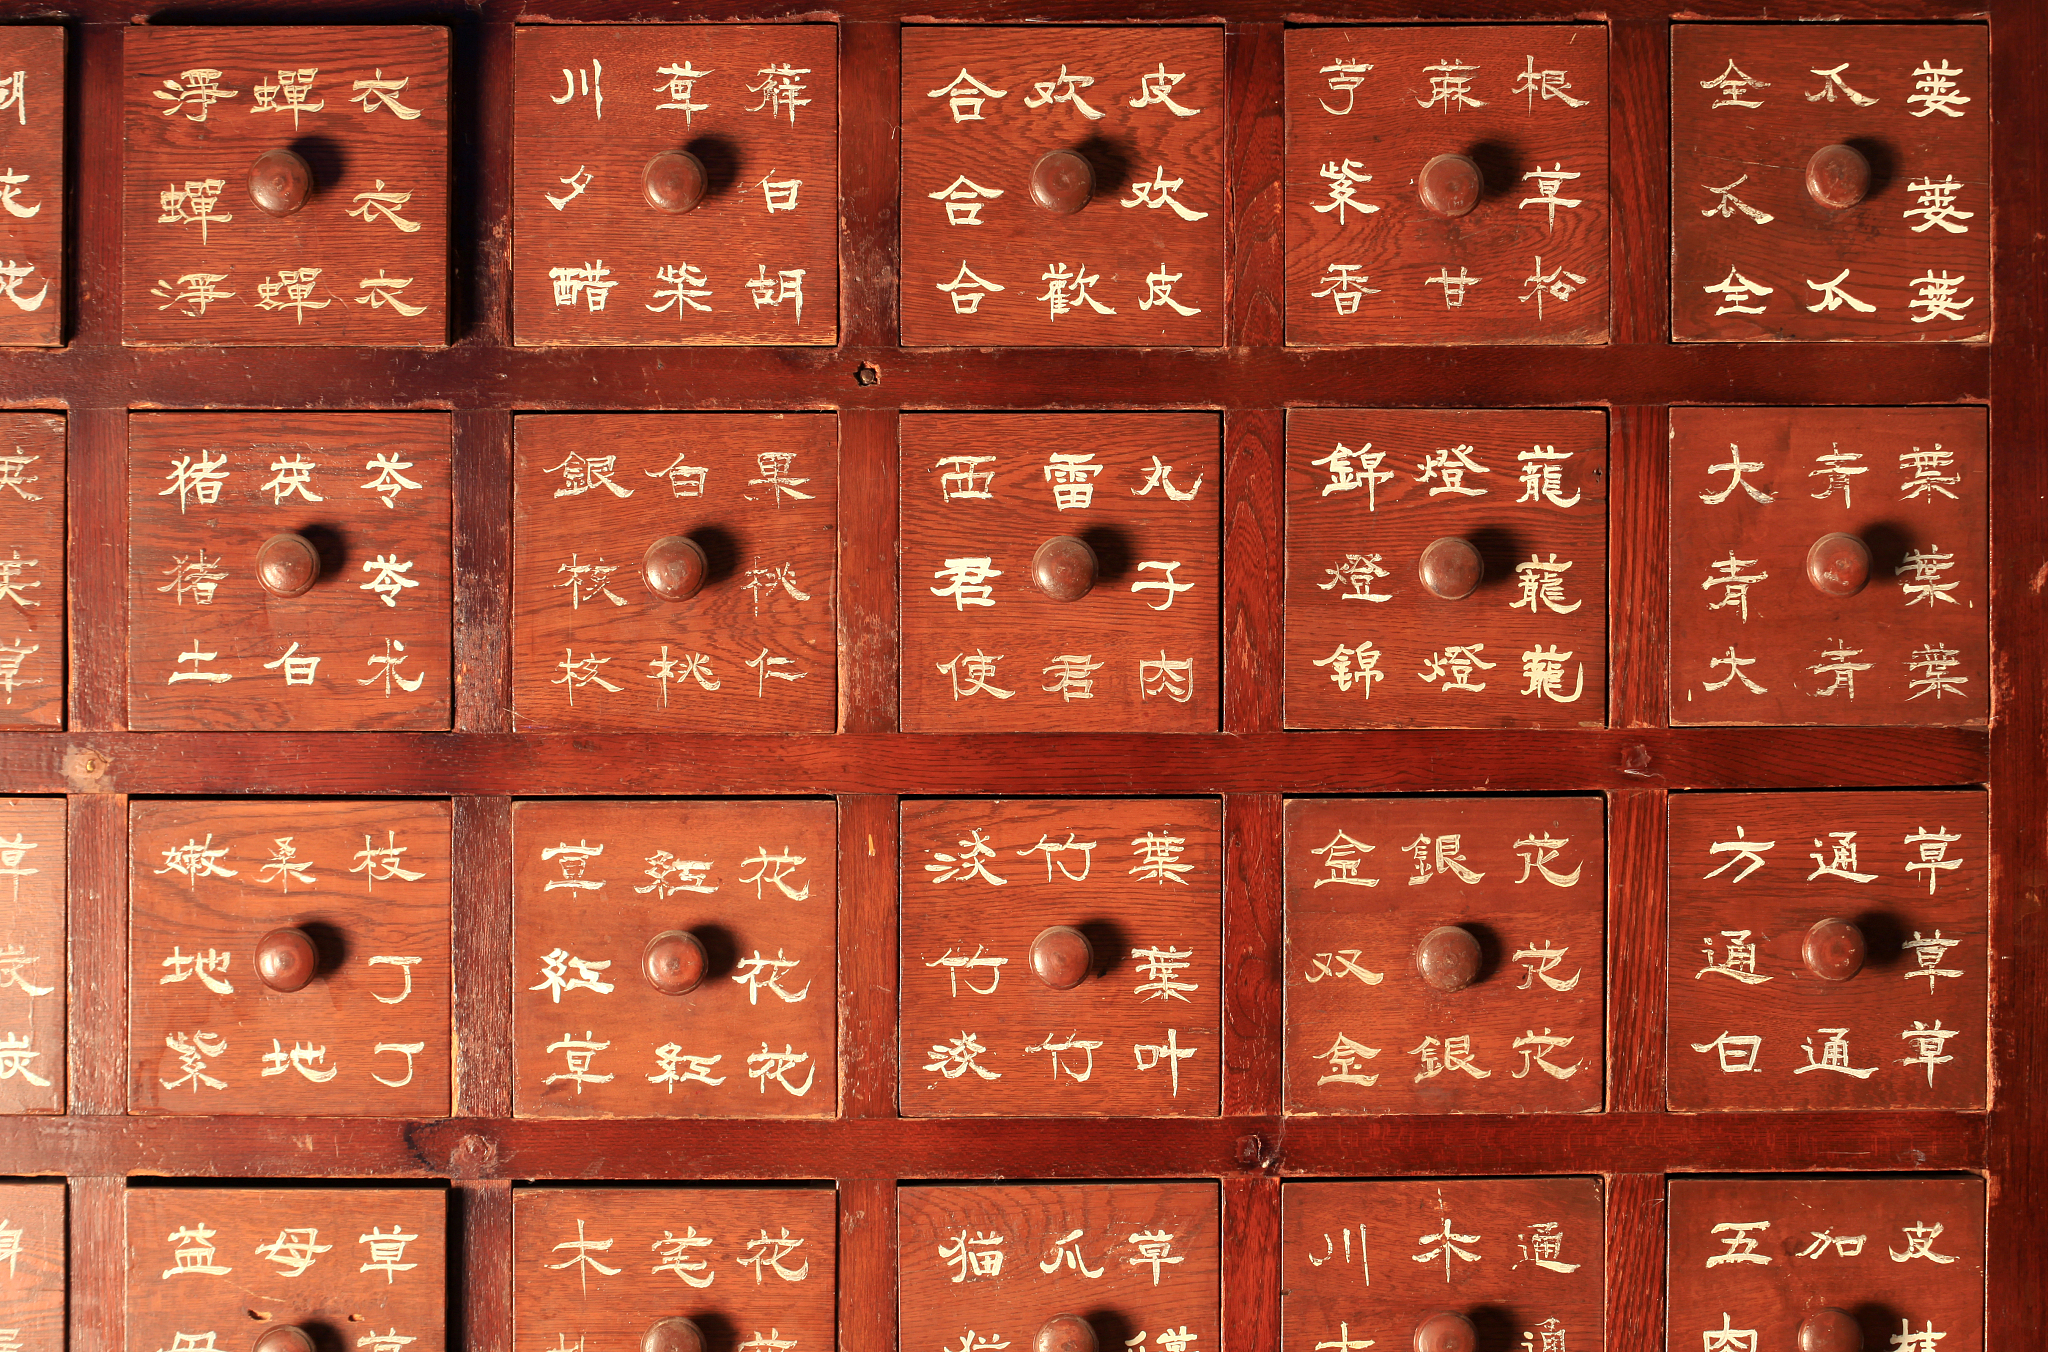 胡
花
花
淨蟬衣
蟬 衣
淨蟬衣
川萆薢
夕 白
醋柴胡
合欢皮
合 欢
合歡皮
蔴根
紫 草
香甘松
全瓜蔞
瓜 蔞
全瓜蔞
草
猪茯苓
猪 苓
土白术
銀白果
核 桃
核桃仁
西雷丸
君 子
使君肉
錦燈蘢
燈 蘢
锦燈蘢
大青葉
青 葉
大青葉
草
炭
炭
嫩桑枝
地 丁
紫地丁
草紅花
紅 花
草紅花
淡竹葉
竹 葉
淡竹叶
金銀花
双 花
金銀花
方通草
通 草
白通草
益母草
母 草
木笔花
猫爪草
川木通
木 通
五加皮
肉 桂